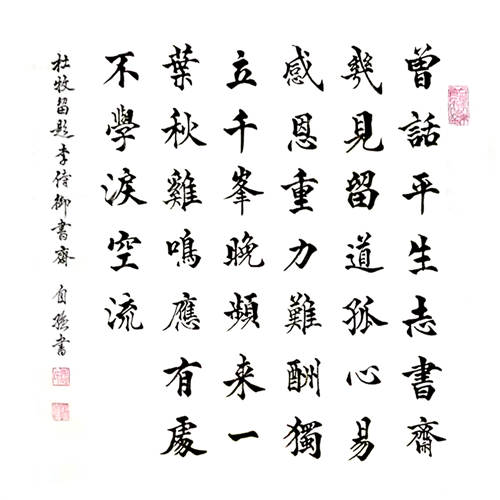 曾話平生志書齋
幾見留道孤心易
感恩重力難酬獨
立千峯晚頻来一
葉秋雞鳴應有處
不學淚空流
杜牧留题李侍御書齋 自 書